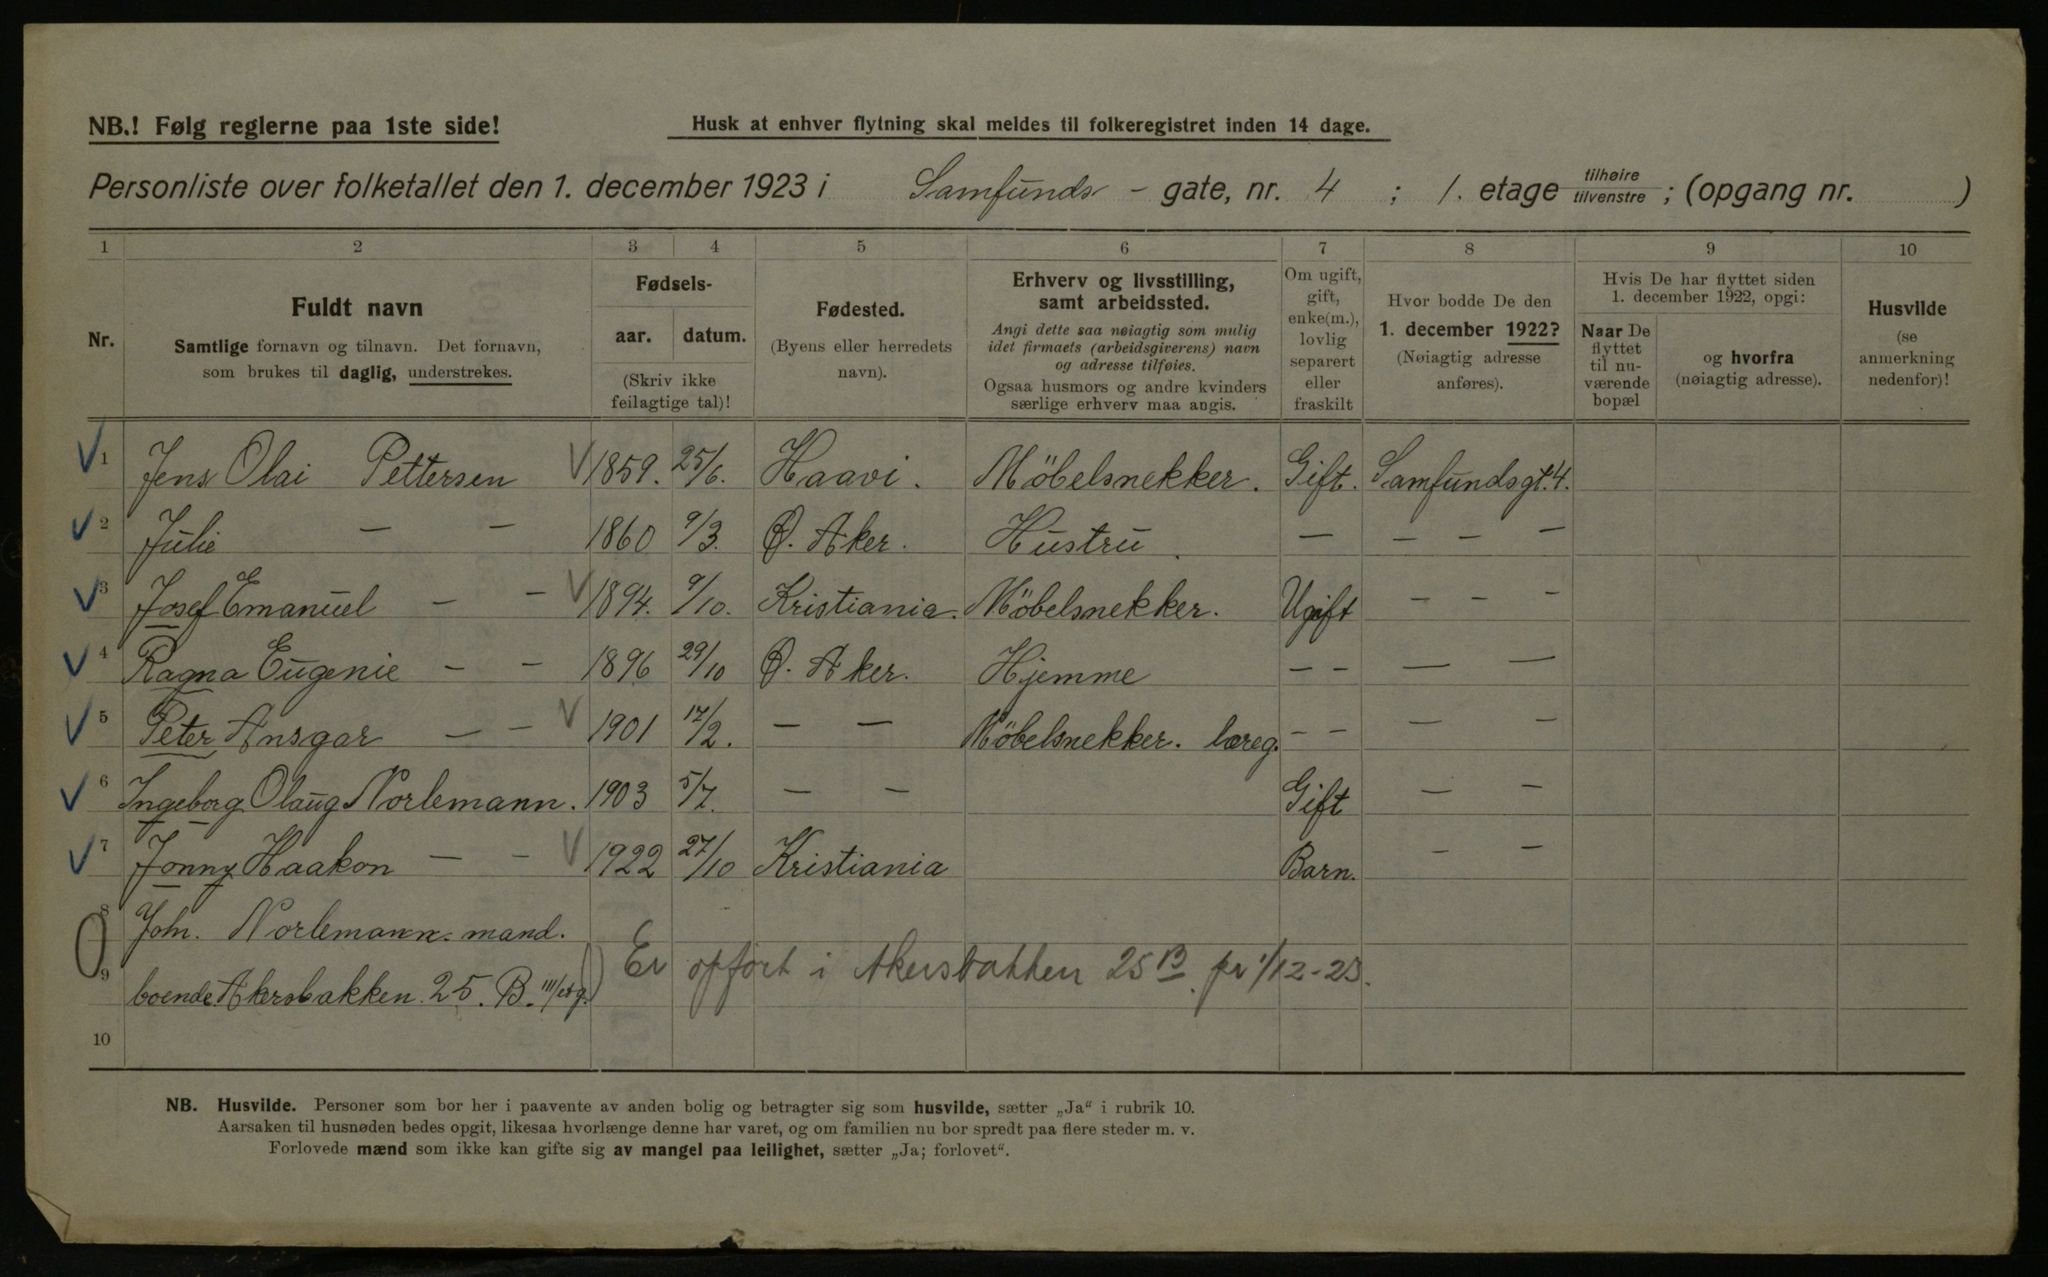 NB.! Følg reglerne paa 1ste side!
Husk at enhver flytning skal meldes til folkeregistret inden 14 dage.
Personliste over folketallet den 1. december 1923 i Samfunds - gate, nr. 4 ; 1. etage tilhøire tilvenstre ; (opgang nr. )
1 2 3 4 5 6 7 8 9 10
Nr.
Fuldt navn
Samtlige fornavn og tilnavn. Det fornavn,
som brukes til daglig, understrekes.
Fødsels-
aar. datum.
(Skriv ikke
feilagtige tal)!
Fødested.
(Byens eller herredets
navn).
Erhverv og livsstilling,
samt arbeidssted.
Angi dette saa nøiagtig som mulig
idet firmaets (arbeidsgiverens) navn
og adresse tilføies.
Ogsaa husmors og andre kvinders
særlige erhverv maa angis.
Om ugift,
gift,
enke(m.),
lovlig
separert
eller
fraskilt
Hvor bodde De den
1. december 1922?
(Nøiagtig adresse
anføres).
Hvis De har flyttet siden
1. december 1922, opgi:
Naar De
flyttet
til nu-
værende
bopæl
og hvorfra
(nøiagtig adresse).
Husvilde
(se
anmerkning
nedenfor)!
1 Jens Olai Pettersen 1859. 25/6. Haavi. Möbelsnekker. Gift. Samfundsgt. 4.
2 Julie — — 1860 9/3. Ø. Aker. Hustru. — — — —
3 Josef Emanuel — — 1894. 9/10. Kristiania. Möbelsnekker. Ugift — — —
4 Ragna Eugenie — — 1896 29/10 Ø. Aker. Hjemme — — — —
5 Peter Ansgar — — 1901 17/2. — — Möbelsnekker. læreg. — — — —
6 Ingeborg Olaug Norlemann. 1903 5/7. — — Gift — —
7 Jonny Haakon — — 1922 27/10 Kristiania Barn. — —
8 Joh. Norlemann. mand.
9 boende Akersbakken 25. B. III/etg.) Er opført i Akersbakken 25 B. pr 1/12-23.
10
NB. Husvilde. Personer som bor her i paavente av anden bolig og betragter sig som husvilde, sætter „Ja“ i rubrik 10.
Aarsaken til husnøden bedes opgit, likesaa hvorlænge denne har varet, og om familien nu bor spredt paa flere steder m. v.
Forlovede mænd som ikke kan gifte sig av mangel paa leilighet, sætter „Ja; forlovet“.